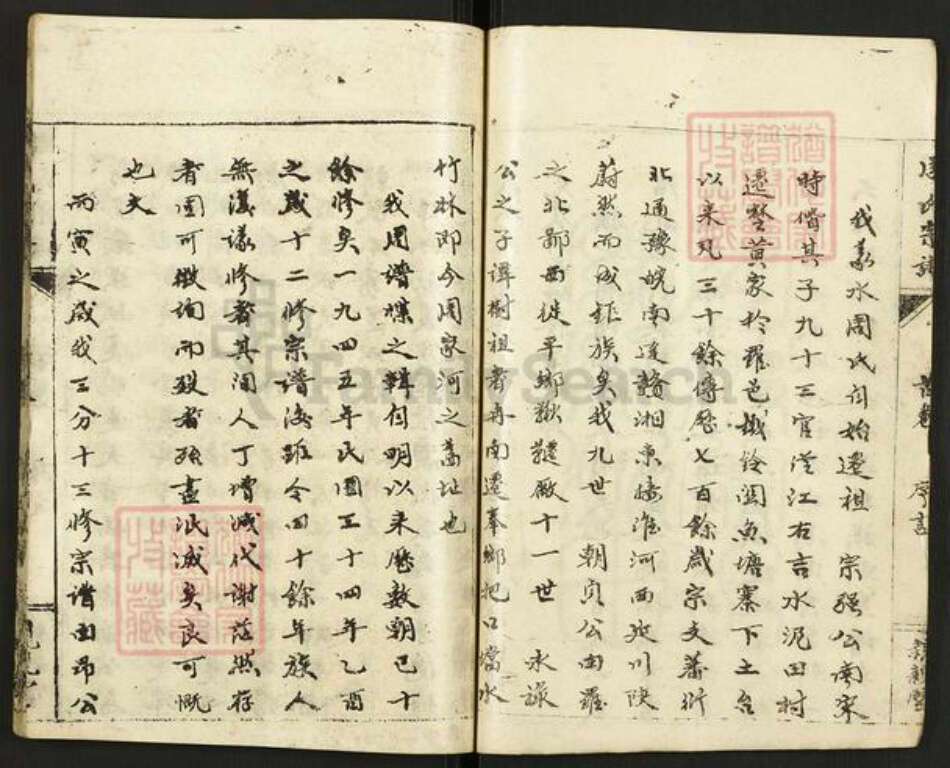 周氏宗譜
首卷
序言
我蘄水周氏自始遷祖 宗强公南宋
時偕其子九十三官從江右吉水泥田村
遷楚黄家於羅邑鐵鈴關魚塘寨下土台
以来凡三十餘傳歷七百餘歲宗支蕃衍
北通豫皖南逵贛湘東接淮河西延川陝
蔚然而成鉅族矣我九世 朝貞公由羅
之北鄙西徙平鄉 厥十一世 永諒
公之子諱樹祖者再南遷奉鄉把口 水
竹林即今周家河之舊址也
我周譜牒之輯自明以来歷數朝已十
餘修矣一九四五年民國三十四年乙酉
之歲十二修宗譜後距今四十餘年族人
無議修者其间人丁增减代謝茫然存
者固可徵詢而殁者殆盡泯滅矣良可慨
也夫
丙寅之歲我三分十三修宗譜由昂公
FamilySearch